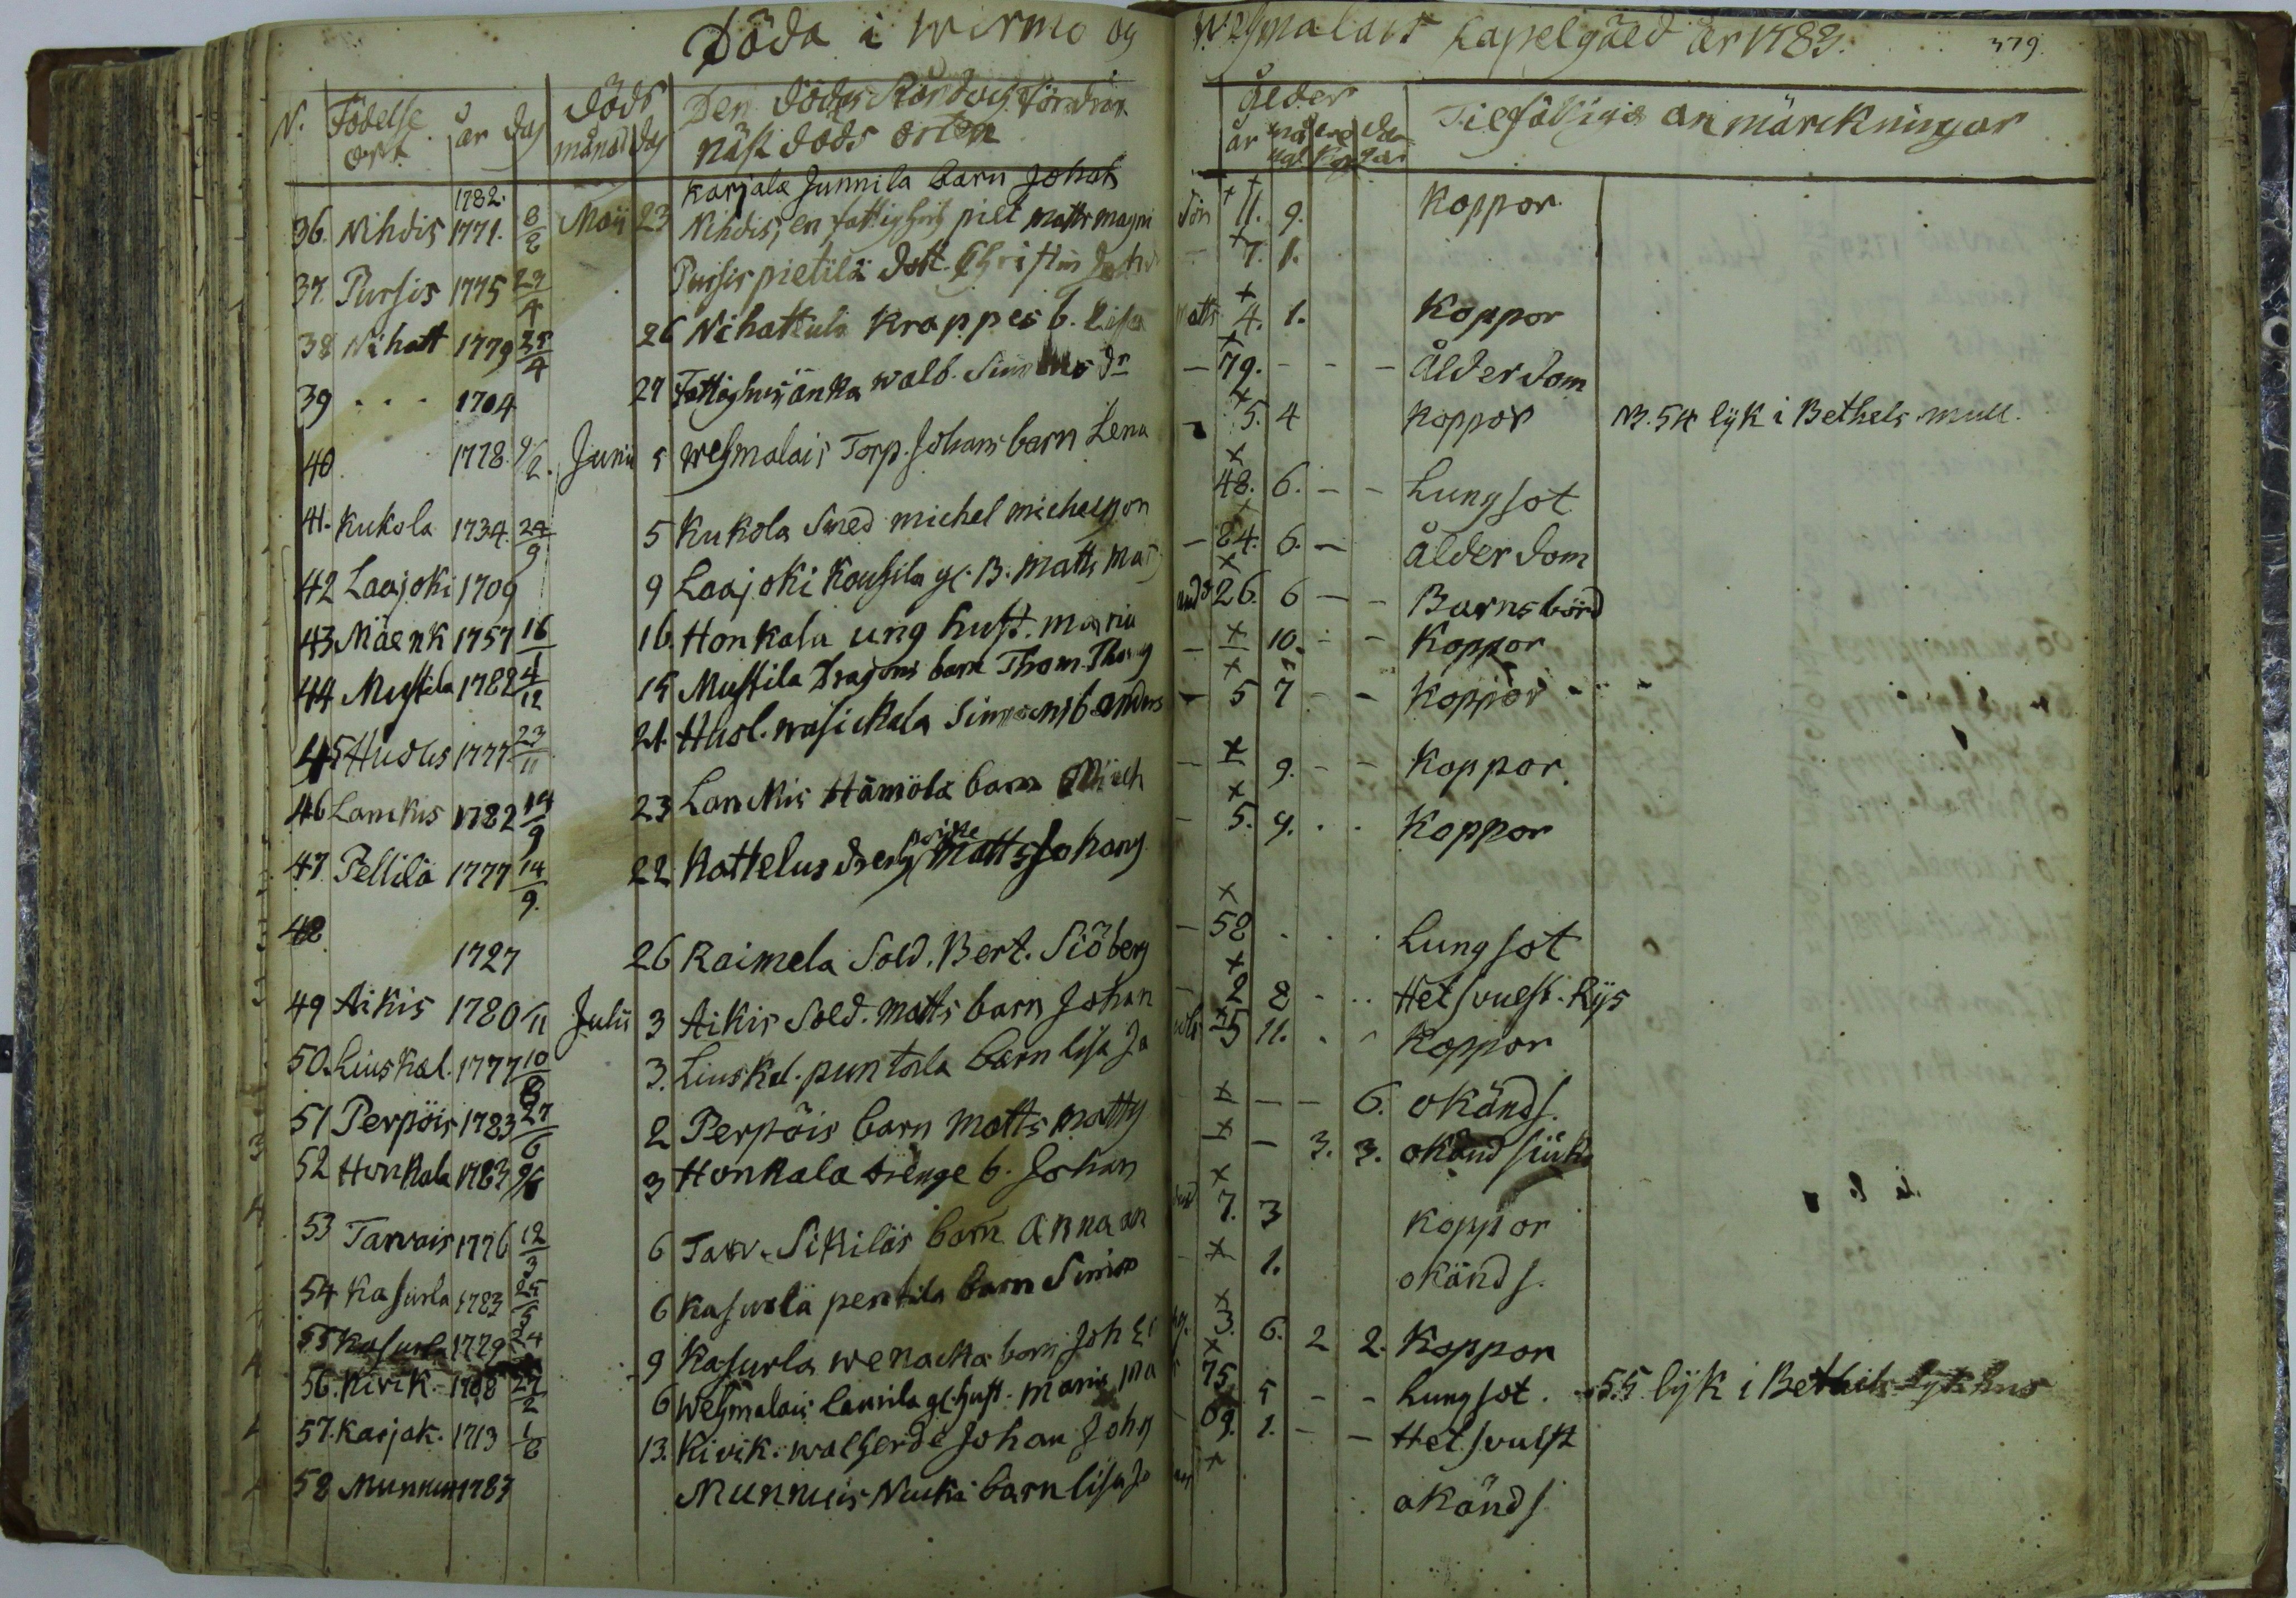 Döda i Wirmo og Wehmalais Kapelgäld år 1783. 379.
N. Födelse ort. år dag Döds månad dag Den Dödas Stånd och
näst döds orten ålder år Tilfällige anmärckningar
1782. Karjala Junnila barn Johan
36. Nihdis 1771. 8/8 Maij 23 Nihdis, en fattighuis pilt Matts Magni Son 11. 9. Koppor
37 Pursis 1775 29/4 Pursis pietilä dott. Christin - 7. 1.
38 Nihatt 1779 25/4 26 Nihattula Krappes b. Lisa Matts 4. 1. Koppor
39 - - - 1704 27 Fattighuis änka Walb. Simons dr - 79. - - - Ålderdom
40 1778. 9/2. Junii 5 Wehmalais Torp. Johans barn Lena - 5. 4 Koppor N. 54 lÿk i Bethels mull.
41. Kukola 1734. 24/9 5 Kukola Smed Michel Michelsson 48. 6. - - Lungsot
42 Laajoki 1709 9 Laajoki Kousila gl. B. Matts Mat - 84. 6. - Ålderdom
43 Mäenk 1757 16/1 16. Honkala ung hust. Maria And 26. 6 - - Barnsbörd
44 Mustila 1782 4/12 15 Mustila Dragons barn Thom. Thom - 10. - - Koppor
45 Huolis 1777 23/11 21. Huol. Wasickala Simons b Anders - 5 7 - - Koppor
46 Lanckis 1782 14/9 23 Lanckis Hämölä barn Mich - 9. - - Koppor
47 Pellilä 1777 14/9. 22 Kattelus dreng poike Matts Johans - 5. 9. . . Koppor
48 1727 26 Raimela Sold. Bert. Siöberg - 58 . . . Lungsot
49 Aikis 1780 /11 Julii 3 Aikis Sold. Matts barn Johan - 2 8 - .. Hetsvulst. Rÿs
50. Liuskal. 1777 10/8 3. Liuskal. puntola barn Lisa Ja 5 11. . . Koppor
51 Perpöis 1783 27/6 2 Perpöis barn Matts Matts - - - 6. okänd s.
52 Honkala 1783 9/6 3 Honkala drenge b. Johan - - 3. 3. okänd siuk
53 Tarvais 1776 12/3 6 Tarv. Sikiläs barn Anna An 7. 3 Koppor
54 Kasurla 1783 25/5 6 Kasurla pentila barn Simon - 1. okänd s.
55 Kasurla 1779 24 9 Kasurla Wenacka barn Joh Er 3. 6. 2 2. Koppor
56. Kivik. 1708 27/2 6 Wehmalais Laurila gl. hust. Maria Ma 75 5 - - Lungsot. 55 lÿk i Bethels lÿkhus
57. Karjak. 1713 1/8 13. Kivik. Walherde Johan Johs - 69. 1. - - Hetsvulst
58 Munnuis 1783 Munnuis Nuuki barn Lisa Jo okänd s